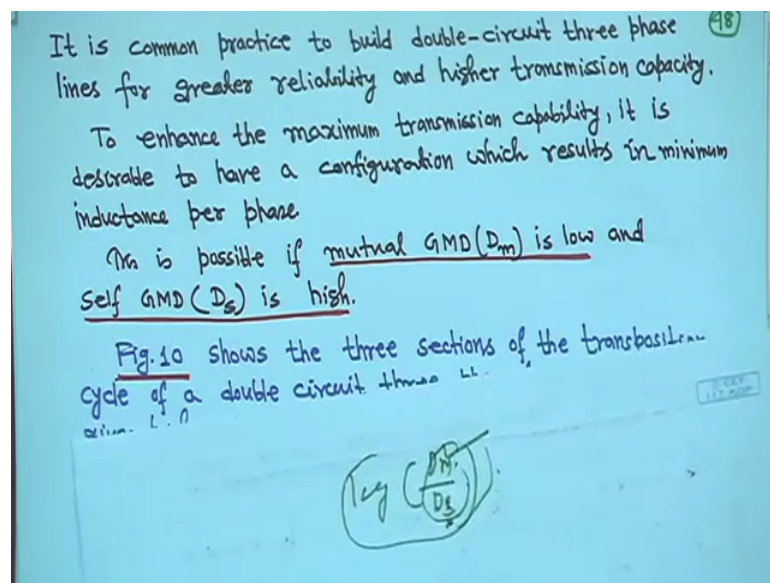 48
It is common practice to build double-circuit three phase
lines for greater reliability and higher transmission capacity.
To enhance the maximum transmission capability, it is
desirable to have a configuration which results in minimum
inductance per phase
This is possible if mutual GMD (Dm) is low and
self GMD (Ds) is high.
Fig. 10 shows the three sections of the transposition
cycle of a double circuit three
Dm
Ds